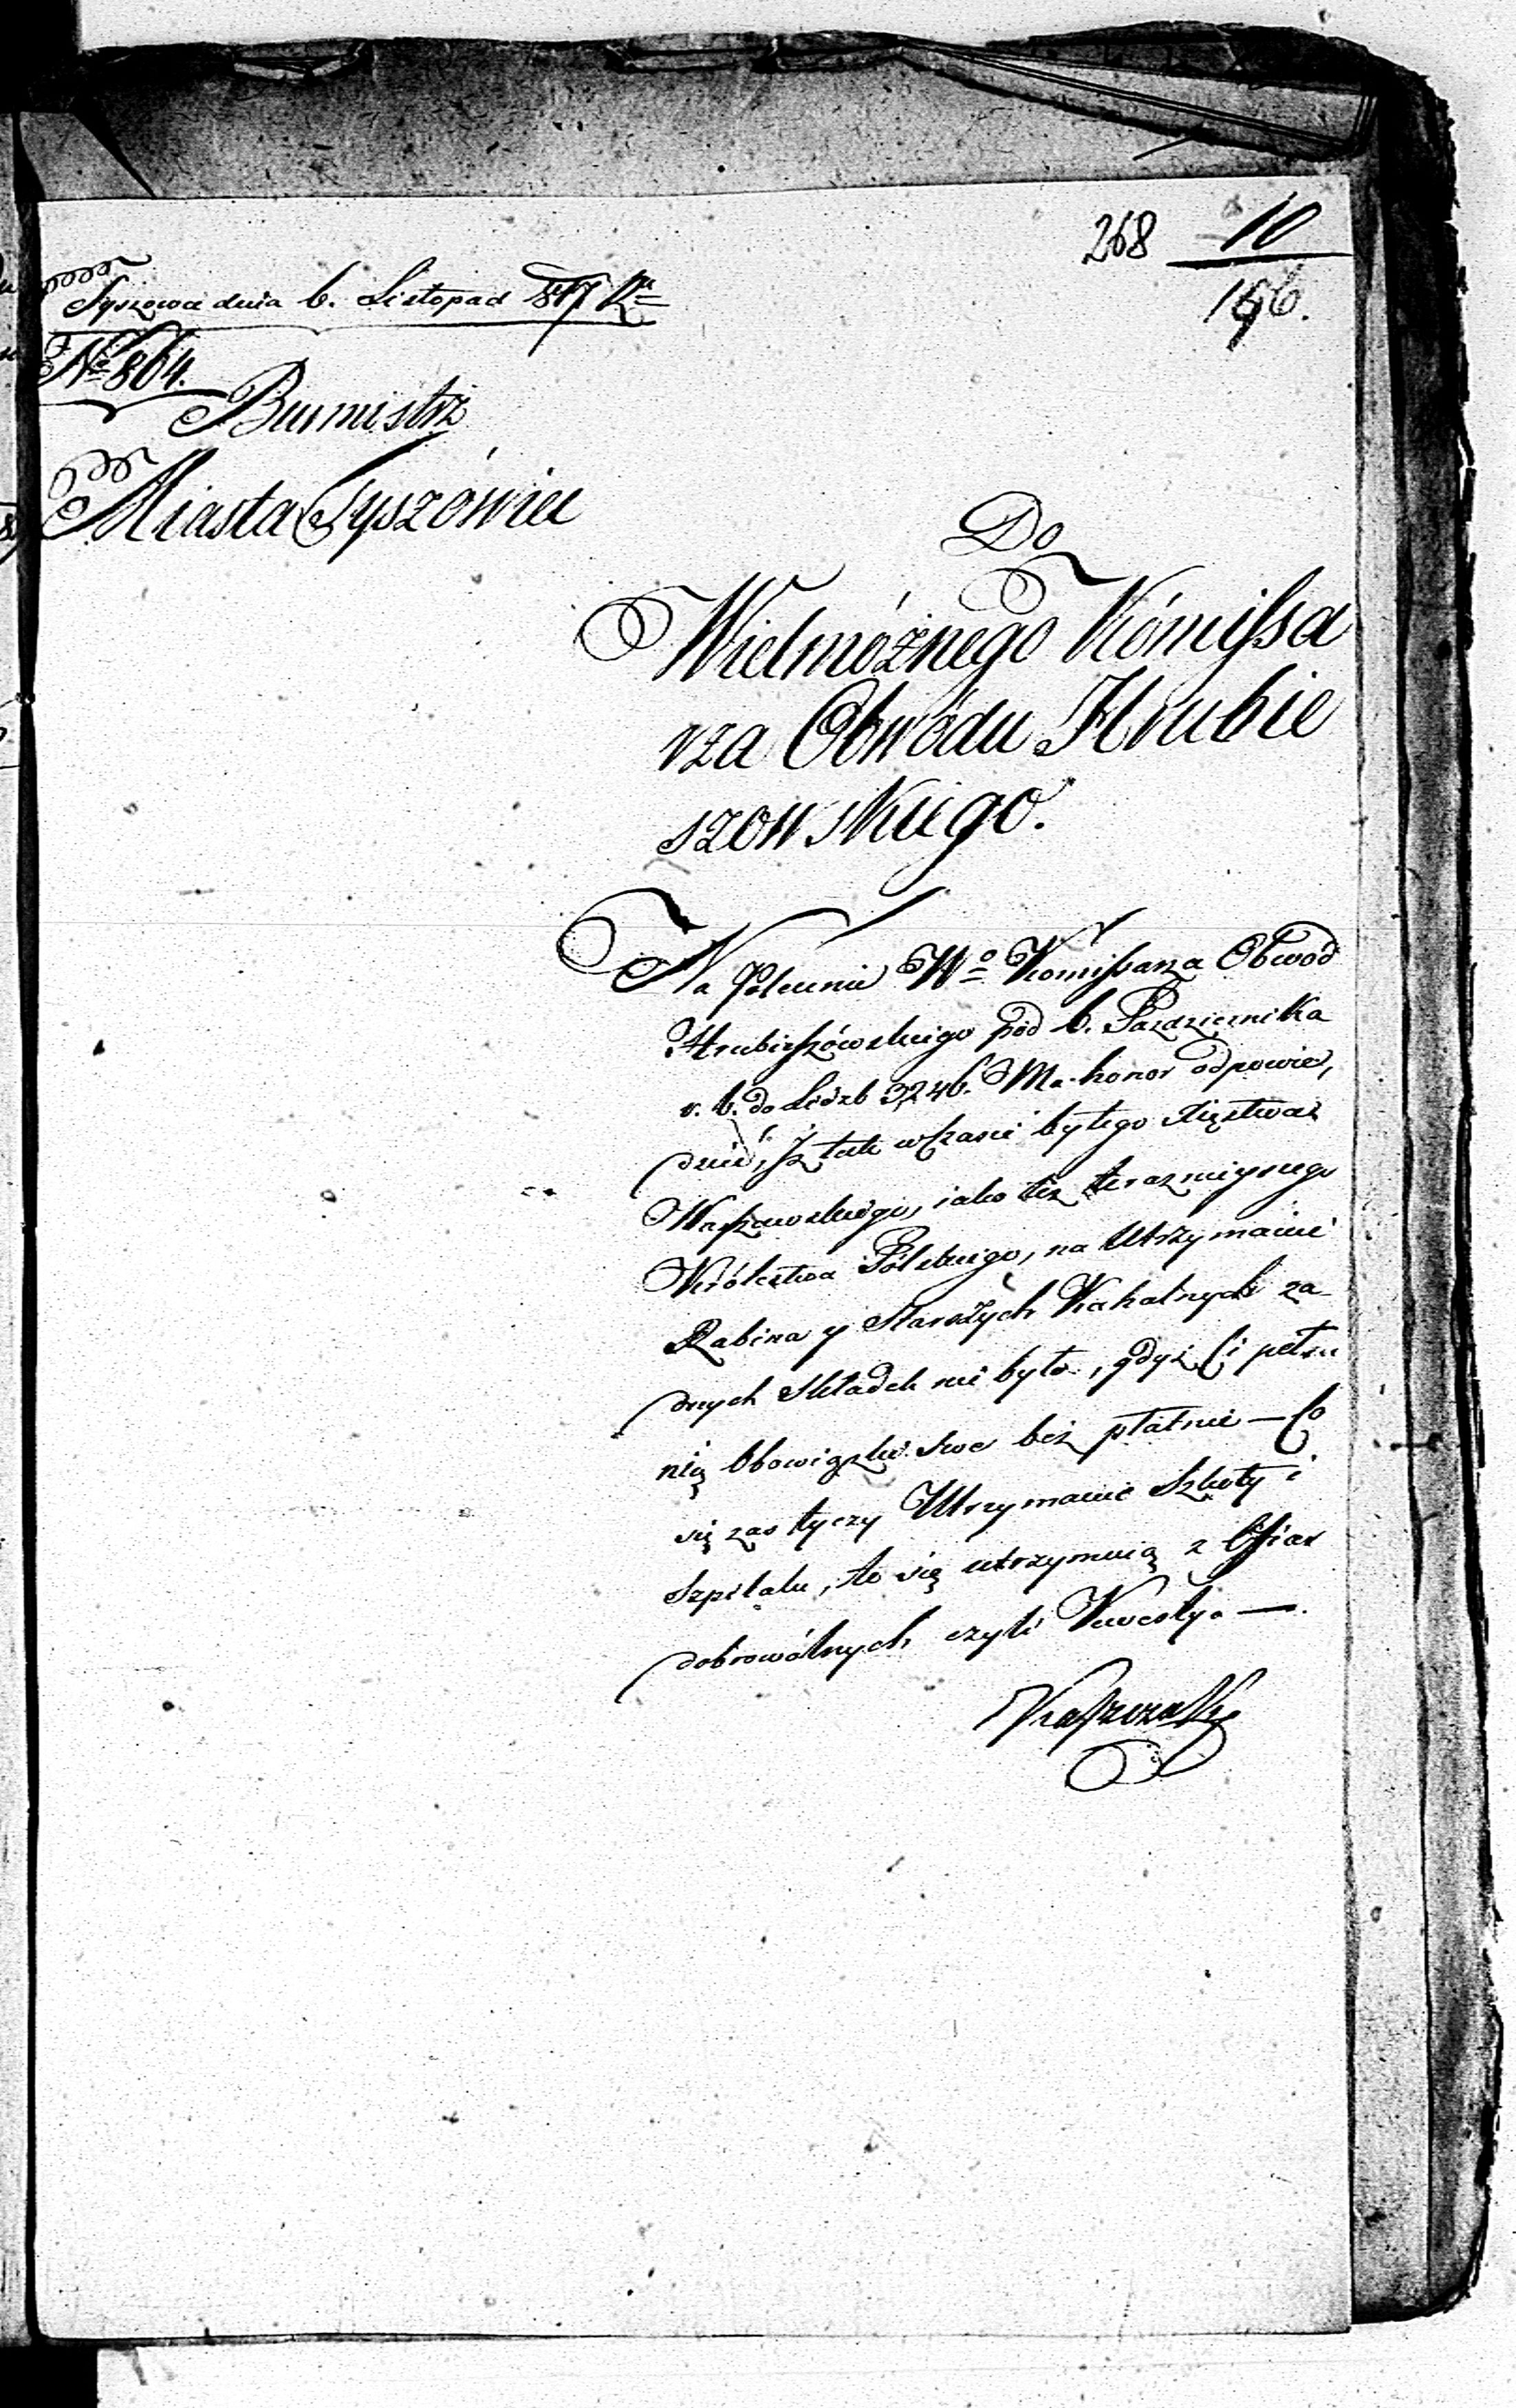 268 10
196.
Tyszowce dnia 6. Listopad 1817 Ru
No 864.
Burmistrz
Miasta Tyszówiec
Do
Wielmożnego Kómissa
rza Obwódu Hrubie
szowskiego.
Na Polecenie Wo Komissarza Obwod
Hrubieszówskiego pod 6. Pazdziernika
r. b. do Liczb 3246. Ma honor odpowie,
dzieć, Jż tak w Czasie byłego Xięstwa
Warszawskiego, iako też teraznieyszego
Królestwa Pólskiego, na Utrzymanie
Rabina y Starszych Kahalnych ża-
dnych Składek nie było, gdyż Ci pełn
nią Obowiązki swe bez płatnie — Co
się zas tyczy Utrzymanie Szkoły i
Szpitalu, to się utrzymuią z Ofiar
dobrowólnych czyli Kwesty. —.